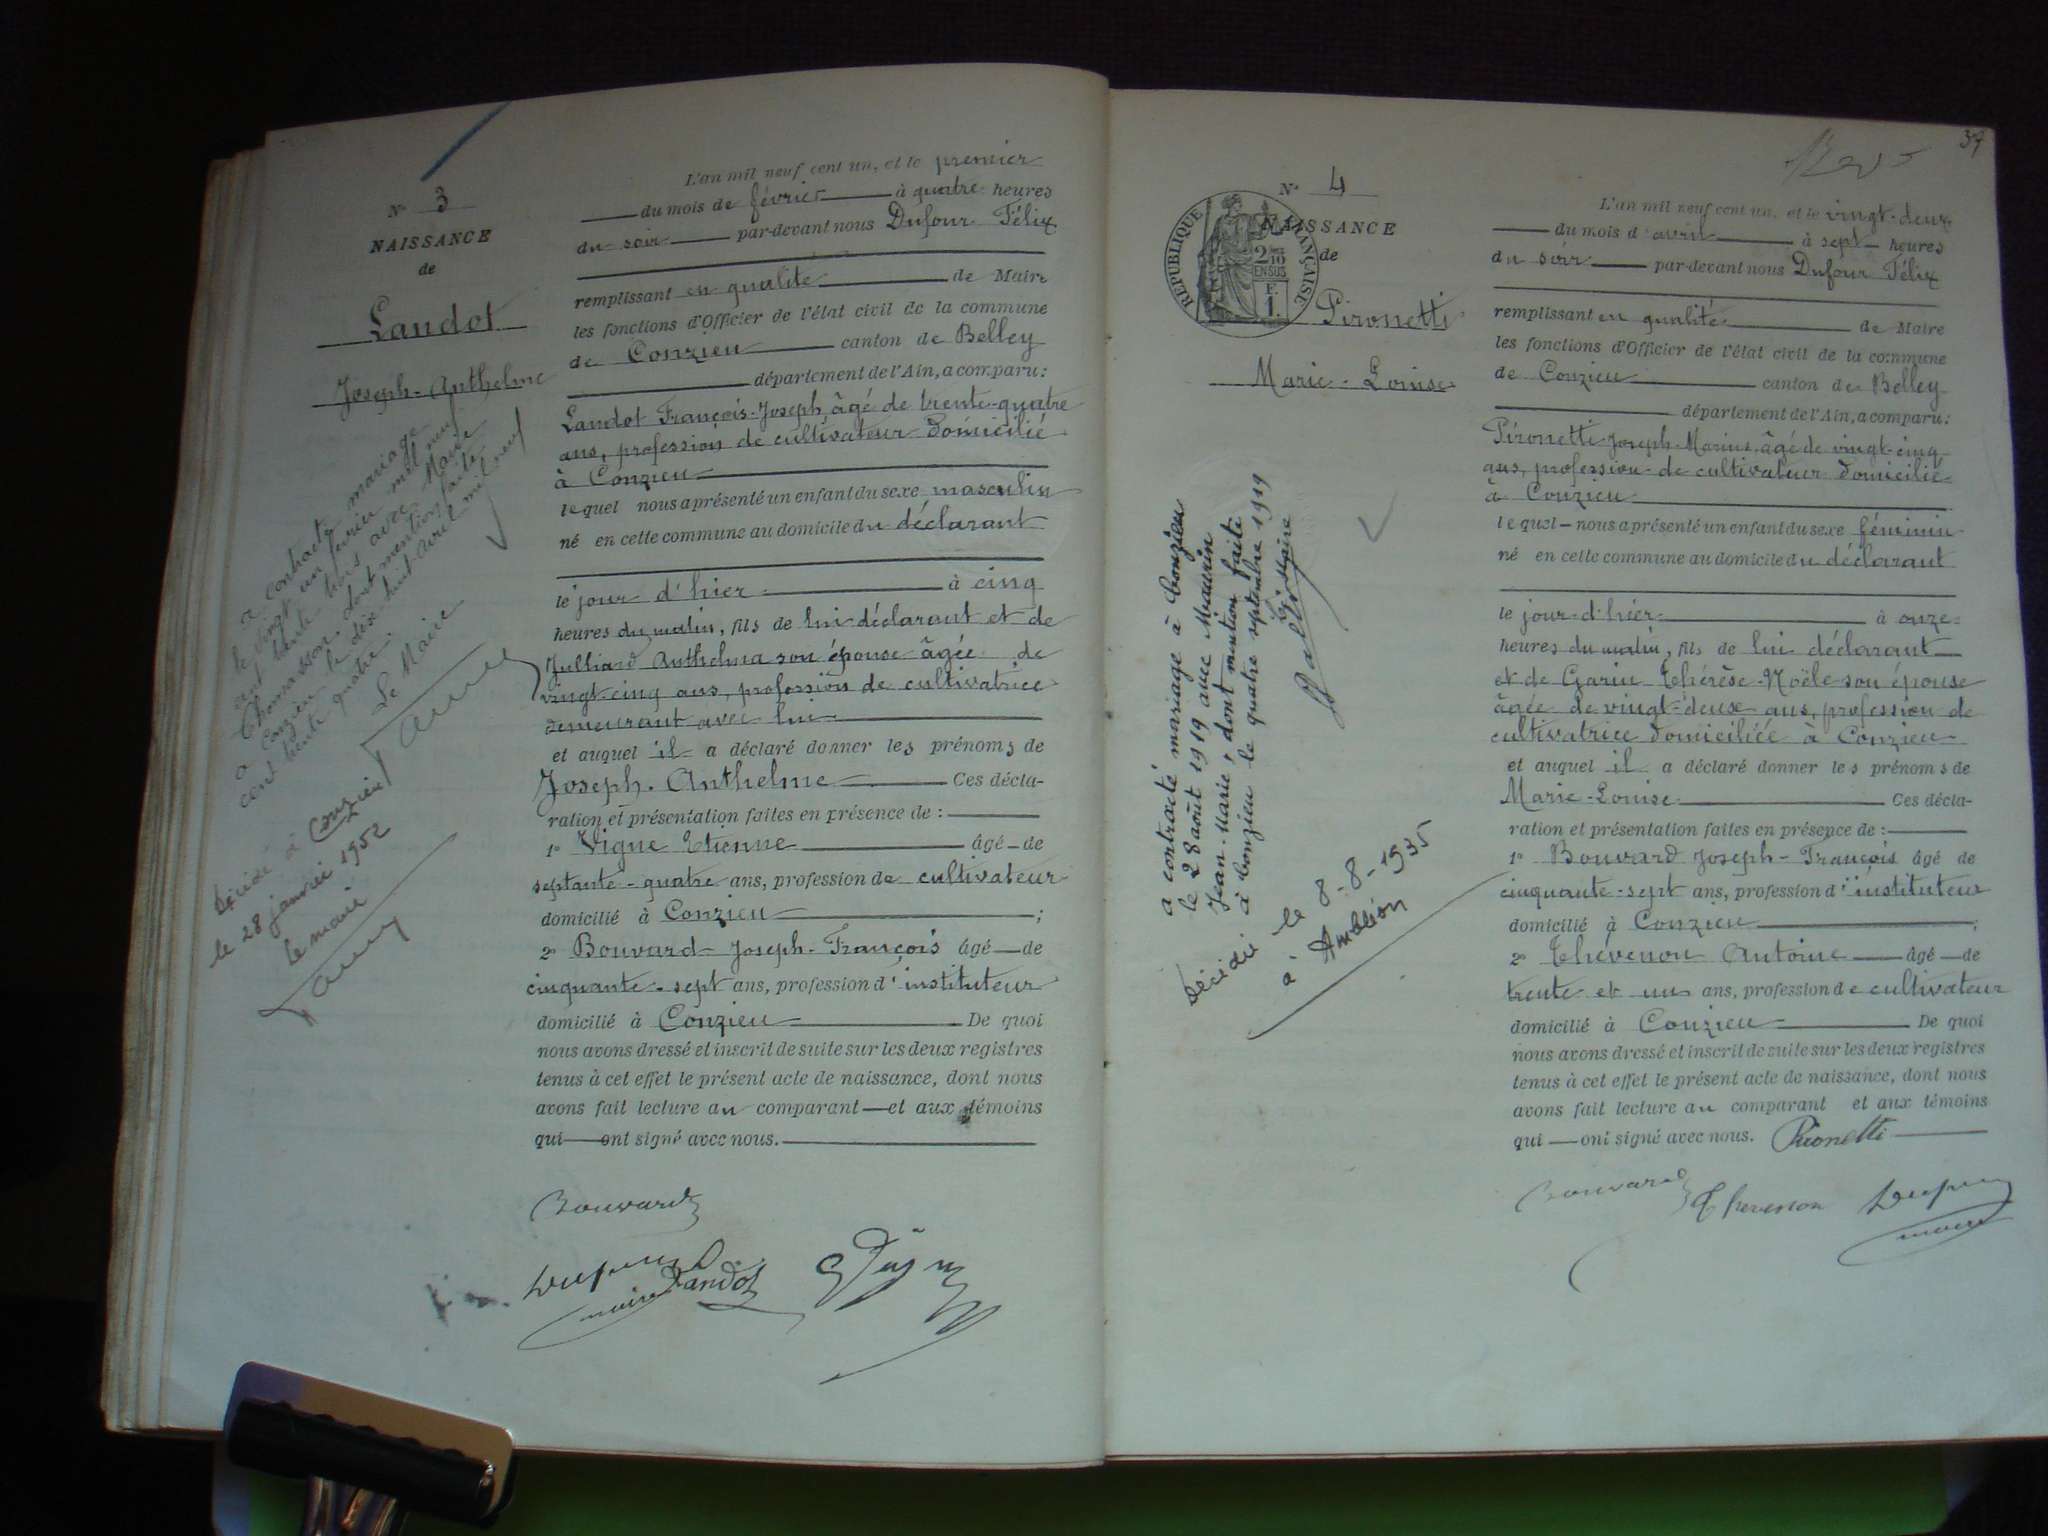 N° 3
NAISSANCE
de
Landot
Joseph-Anthelme
a contracté mariage
le vingt un février mil neuf
cent trente trois avec Marie
Thomasson dont mention faite
à Conzieu le dix huit avril mil neuf
cent trente quatre.
Le Maire
Décédé à Conzieu
le 28 janvier 1952
le maire
L'an mil neuf cent un, et le premier
du mois de février à quatre heures
du soir par-devant nous Dufour Félix
remplissant en qualité de Maire
les fonctions d'Officier de l'état civil de la commune
de Conzieu canton de Belley
département de l'Ain, a comparu:
Landot François-Joseph, âgé de trente-quatre
ans, profession de cultivateur domicilié
à Conzieu
lequel nous a présenté un enfant du sexe masculin
né en cette commune au domicile du déclarant
le jour d'hier à cinq
heures du matin, fils de lui déclarant et de
Julliard Anthelma son épouse âgée de
vingt-cinq ans, profession de cultivatrice
demeurant avec lui
et auquel il a déclaré donner les prénoms de
Joseph-Anthelme Ces décla-
ration et présentation faites en présence de :
1° Vigne Etienne âgé de
septante-quatre ans, profession de cultivateur
domicilié à Conzieu ;
2° Bouvard Joseph-François âgé de
cinquante-sept ans, profession d'instituteur
domicilié à Conzieu De quoi
nous avons dressé et inscrit de suite sur les deux registres
tenus à cet effet le présent acte de naissance, dont nous
avons fait lecture au comparant et aux témoins
qui ont signé avec nous.
Bouvard
maire Landot
37
N° 4
NAISSANCE
de
RÉPUBLIQUE FRANÇAISE
2/10 EN SUS
F. 1.
Pironetti
Marie-Louise
a contracté mariage à Conzieu
le 28 août 1919 avec Maurin
Jean-Marie, dont mention faite
à Conzieu le quatre septembre 1919
Décédée le 8-8-1935
à Ambléon
L'an mil neuf cent un, et le vingt-deux
du mois d'avril à sept heures
du soir par-devant nous Dufour Félix
remplissant en qualité de Maire
les fonctions d'Officier de l'état civil de la commune
de Conzieu canton de Belley
département de l'Ain, a comparu:
Pironetti Joseph-Marius, âgé de vingt-cinq
ans, profession de cultivateur domicilié
à Conzieu
lequel nous a présenté un enfant du sexe féminin
né en cette commune au domicile du déclarant
le jour d'hier à onze
heures du matin, fils de lui déclarant
et de Garin Thérèse-Noële son épouse
âgée de vingt-deux ans, profession de
cultivatrice domiciliée à Conzieu
et auquel il a déclaré donner les prénoms de
Marie-Louise Ces décla-
ration et présentation faites en présence de :
1° Bouvard Joseph-François âgé de
cinquante-sept ans, profession d'instituteur
domicilié à Conzieu ;
2° Thévenon Antoine âgé de
trente et un ans, profession de cultivateur
domicilié à Conzieu De quoi
nous avons dressé et inscrit de suite sur les deux registres
tenus à cet effet le présent acte de naissance, dont nous
avons fait lecture au comparant et aux témoins
qui ont signé avec nous. Pironetti
Bouvard Thevenon
maire